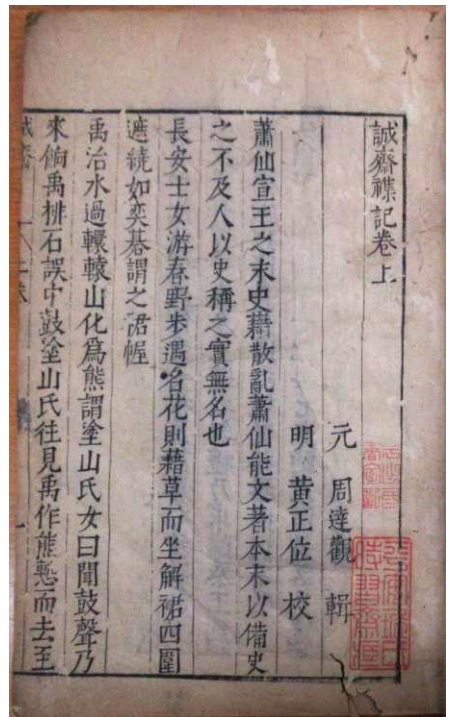 誠齋襍記卷上
元 周達觀 輯
明 黃正位 校
蕭仙宣王之末史藉散亂蕭仙能文著本末以備史
之不及人以史稱之實無名也
長安士女游春野步遇名花則藉草而坐解裙四圍
遮繞如奕棊謂之裙幄
禹治水過轘轅山化爲熊謂塗山氏女曰聞鼓聲乃
來餉禹排石誤中鼓塗山氏往見禹作熊慙而去至